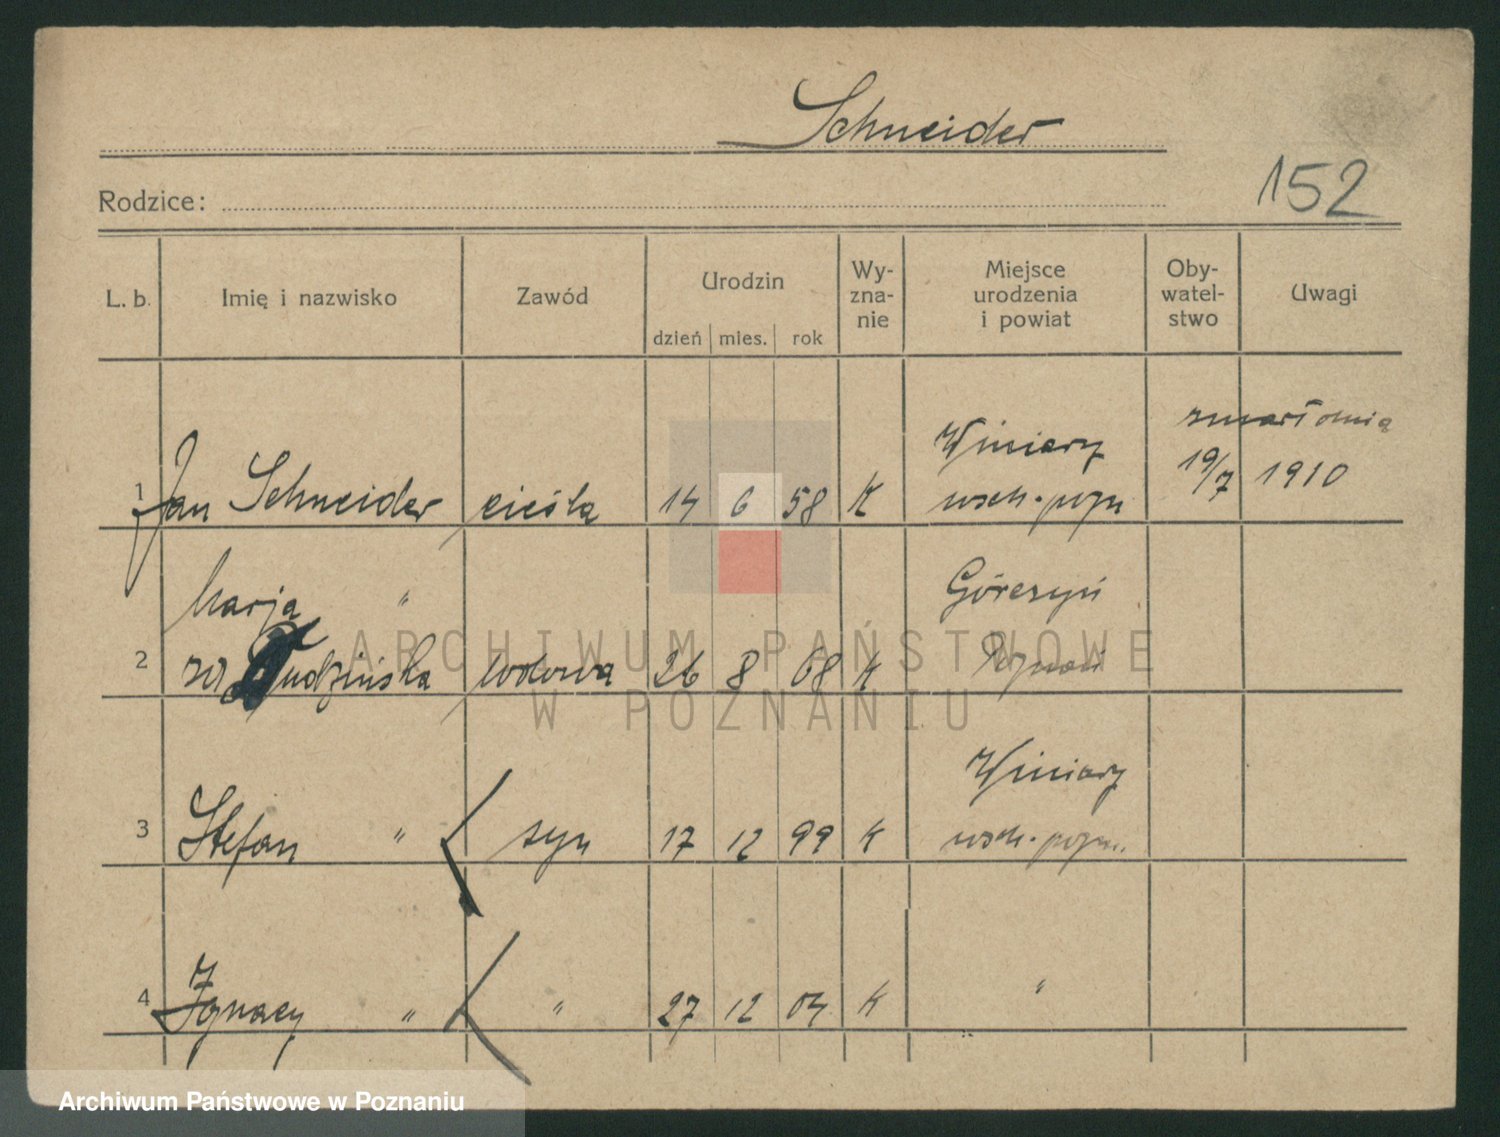 Schneider
152
Rodzice:
L. b. Imię i nazwisko Zawód Urodzin dzień mies. rok Wy-
zna-
nie Miejsce
urodzenia
i powiat Oby-
watel-
stwo Uwagi
zmarł dnia
19/7 1910
Winiary
1 Jan Schneider cieśla 14 6 58 K wsch. pozn
Marja " Górczyn
2 wdowa 26 8 68 K Poznań
Winiary
3 Stefan " syn 17 12 99 K wsch. pozn.
4 Ignacy " " 27 12 04 K "
ARCHIWUM PAŃSTWOWE
W POZNANIU
Archiwum Państwowe w Poznaniu